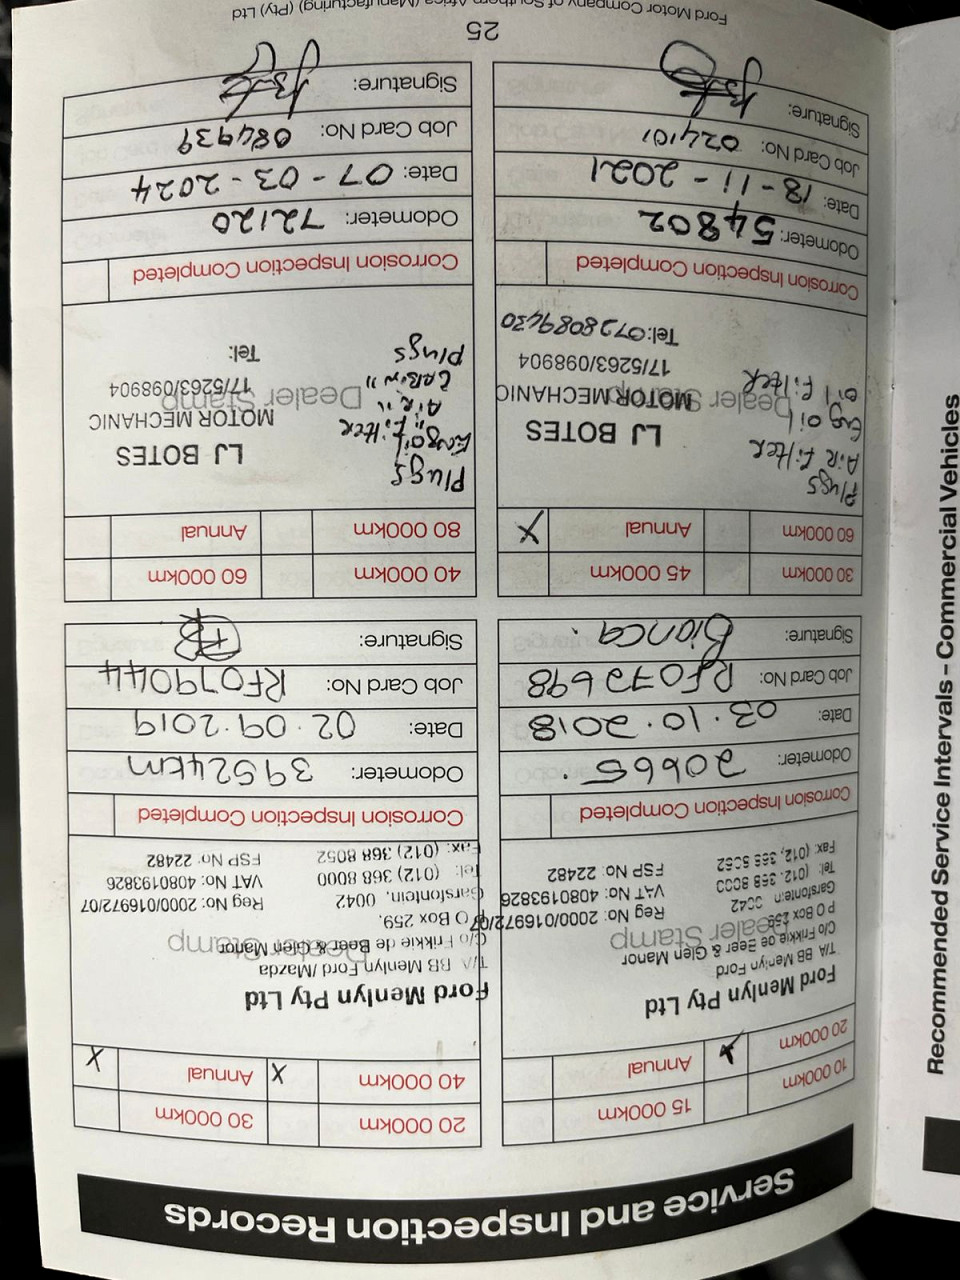 Service and Inspection Records
10 000km 15 000km
20 000km X Annual
Ford Menlyn Pty Ltd
T/A BB Menlyn Ford
C/o Frikkie de Beer & Glen Manor
Dealer Stamp
P O Box 259
Garsfontein 0042
Reg No: 2000/016972/07
Tel: (012) 368 8000
VAT No: 4080193826
Fax: (012) 368 8052
FSP No: 22482
Corrosion Inspection Completed
Odometer: 20665
Date: 03.10.2018
Job Card No: RF072698
Signature: Bianca
20 000km 30 000km
40 000km X Annual X
Ford Menlyn Pty Ltd
T/A BB Menlyn Ford/Mazda
C/o Frikkie de Beer & Glen Manor
Dealer Stamp
P O Box 259.
Garsfontein, 0042
Reg No: 2000/016972/07
Tel: (012) 368 8000
VAT No: 4080193826
Fax: (012) 368 8052
FSP No: 22482
Corrosion Inspection Completed
Odometer: 39524km
Date: 02.09.2019
Job Card No: RF079044
Signature:
30 000km 45 000km
60 000km Annual X
Plugs
Air Filter
Eng oil
oil Filter
LJ BOTES
Dealer Stamp
MOTOR MECHANIC
17/5263/098904
Tel: 0728089430
Corrosion Inspection Completed
Odometer: 54802
Date: 18-11-2021
Job Card No: 024101
Signature:
40 000km 60 000km
80 000km Annual
Plugs
Eng oil
" Filter
Air "
Cabin "
Plugs
LJ BOTES
MOTOR MECHANIC
Dealer Stamp
17/5263/098904
Tel:
Corrosion Inspection Completed
Odometer: 72120
Date: 07-03-2024
Job Card No: 084939
Signature:
25
Ford Motor Company of Southern Africa (Manufacturing) (Pty) Ltd
Recommended Service Intervals - Commercial Vehicles